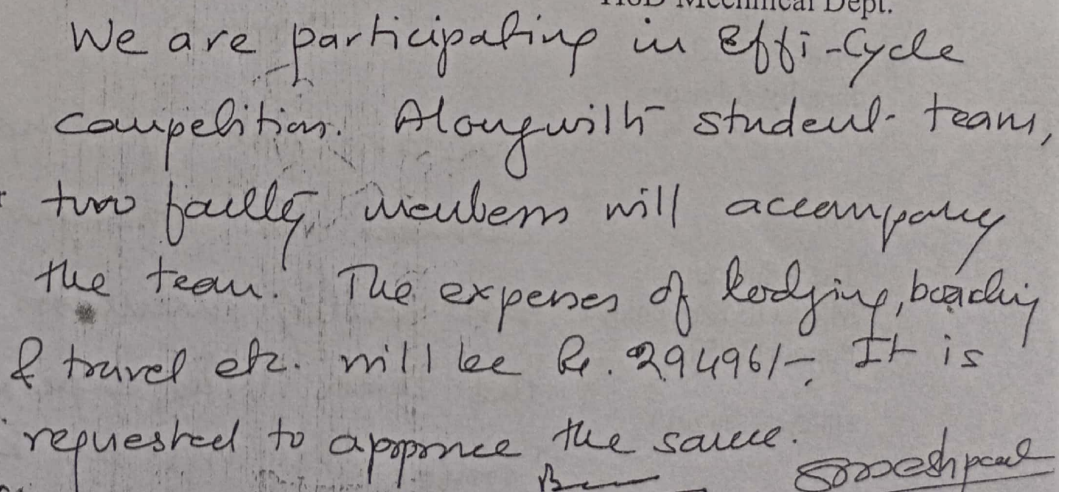 HoD Mechnical Dept.
We are participating in Effi-Cycle
competition. Alongwith student team,
two faculty members will accompany
the team. The expenses of lodging, boarding
& travel etc. will be Rs. 29496/-. It is
requested to approve the same.